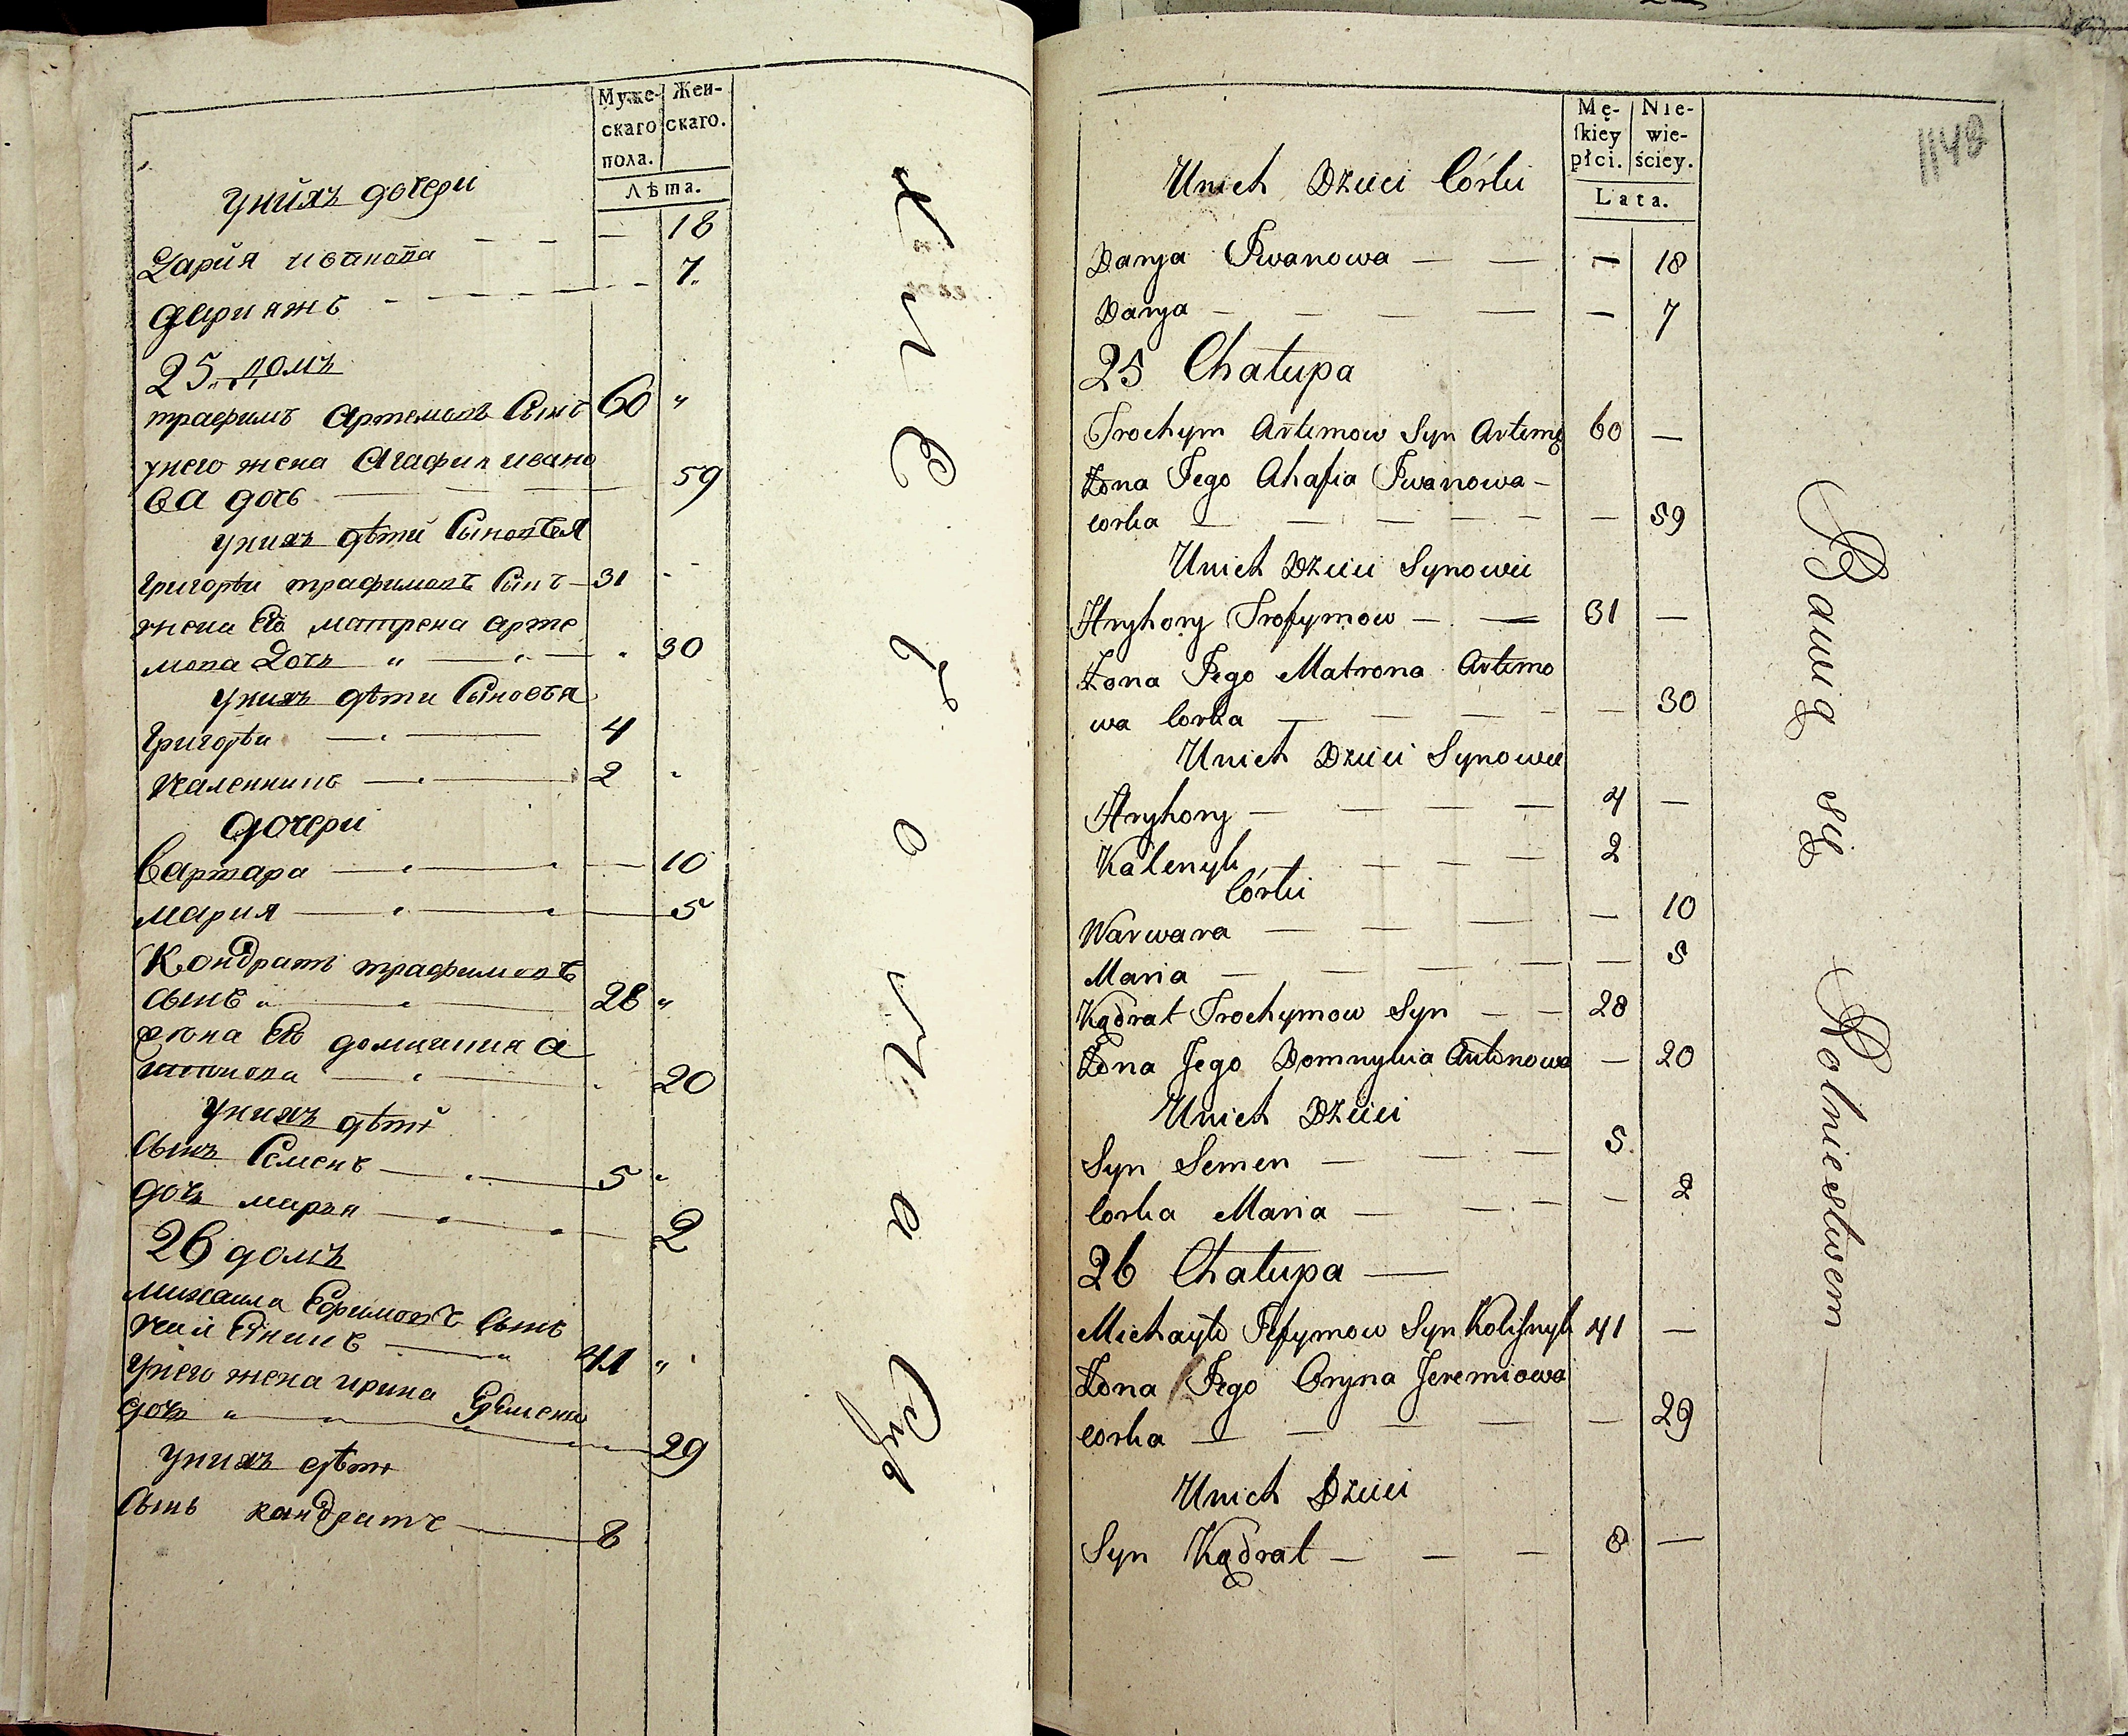 Муже-
скаго
пола.
Жен-
скаго.
Лѣта.
унихъ дочери
Дарйя ивановa — — — 18
дарияжъ — — — 7
25 домъ
трафимъ Артемовъ Сынъ 60 „
унего жена Агафия ивано
ва дочь — — — 59
унихъ дѣти Сыновья
Григорѣи трафимовъ Сынъ — 31
жена Его матрена арте
мова Дочь „ — — 30
унихъ дѣти Сыновья
Григорѣи — — 4
каленникъ — — 2
дочери
Варвара — — — 10
мария — — — 5
Кондратъ трафимовъ
Сынъ „ — — 28 „
жона Его домникия а
— — 20
унихъ дѣти
Сынъ Семенъ — — 5 „
дочь марья — — — 2
26 домъ
михаила Ефимовъ Сынъ
— „ 41 „
унего жена ирина
дочь „ — „ — 29
унихъ дѣти
Сынъ кандратъ — 8
Mę-
skiey
płci.
Nie-
wie-
ściey.
Lata.
1148
Unich Dzieci Córki
Darya Iwanowa — — — 18
Darya — — — — — 7
25 Chałupa
Trochym Artimow Syn Artemę 60 —
Żona Jego Ahafia Iwanowa —
corka — — — — — — 59
Unich Dzieci Synowie
Hryhory Trofymow — — 31 —
Żona Jego Matrona Artimo
wa corka — — — — — 30
Unich Dzieci Synowie
Hryhory — — — — 4 —
Kalenyk — — — — 2
Córki
Warwara — — — — 10
Maria — — — — — — 5
Kądrat Trochymow Syn — — 28
Żona Jego Domnykia Antonowa — 20
Unich Dzieci
Syn Semen — — — 5
corka Maria — — — — 2
26 Chałupa —
Michayło Jefymow Syn Kolisnyk 41 —
Żona Jego Oryna Jeremiowa
corka — — — — — 29
Unich Dzieci
Syn Kądrat — — — 8 —
Bawią się Rolnieństwem —